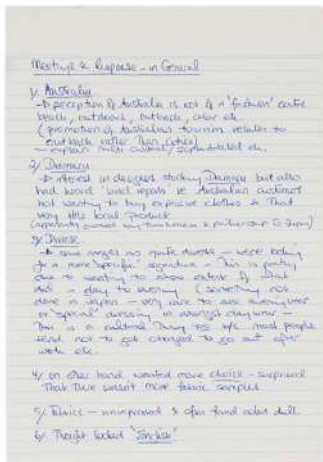 Meetings & Response - in General
1/ Australia
→ perception of Australia is not of a 'fashion' centre
beach, outdoors, outback, color etc.
(promotion of Australian tourism relates to
outback rather than cities)
- explain multi cultural / sophisticated etc.
2/
→ interest in designers stocking but also
had heard 'bad reports' ie Australian customers
not wanting to buy expensive clothes & that
very little local product
3/ Diverse
→ some ranges as quite diverse - were looking
for a more 'specific' signature - This is partly
due to wanting to show extent of what
did - day to evening (something not
done in Japan - very rare to see eveningwear
or 'special' dressing in amongst daywear -
This is a cultural thing too b/c most people
tend not to get changed to go out after
work etc.
4/ on other hand wanted more choice - surprised
that there wasn't more fabric samples
5/ Fabrics - unimpressed & often found color dull
6/ Thought looked "English"